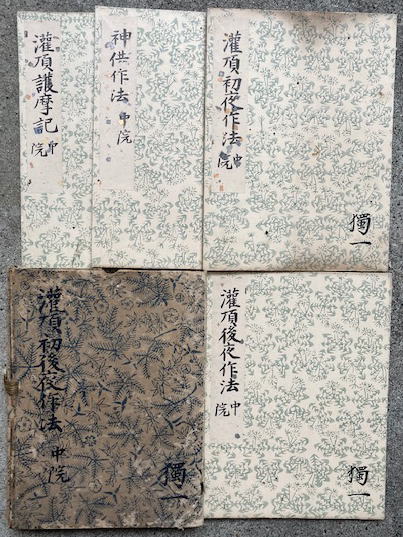 灌頂護摩記 中院
神供作法 中院
灌頂初夜作法 中院
獨一
灌頂初後夜作法 中院
獨一
灌頂後夜作法 中院
獨一